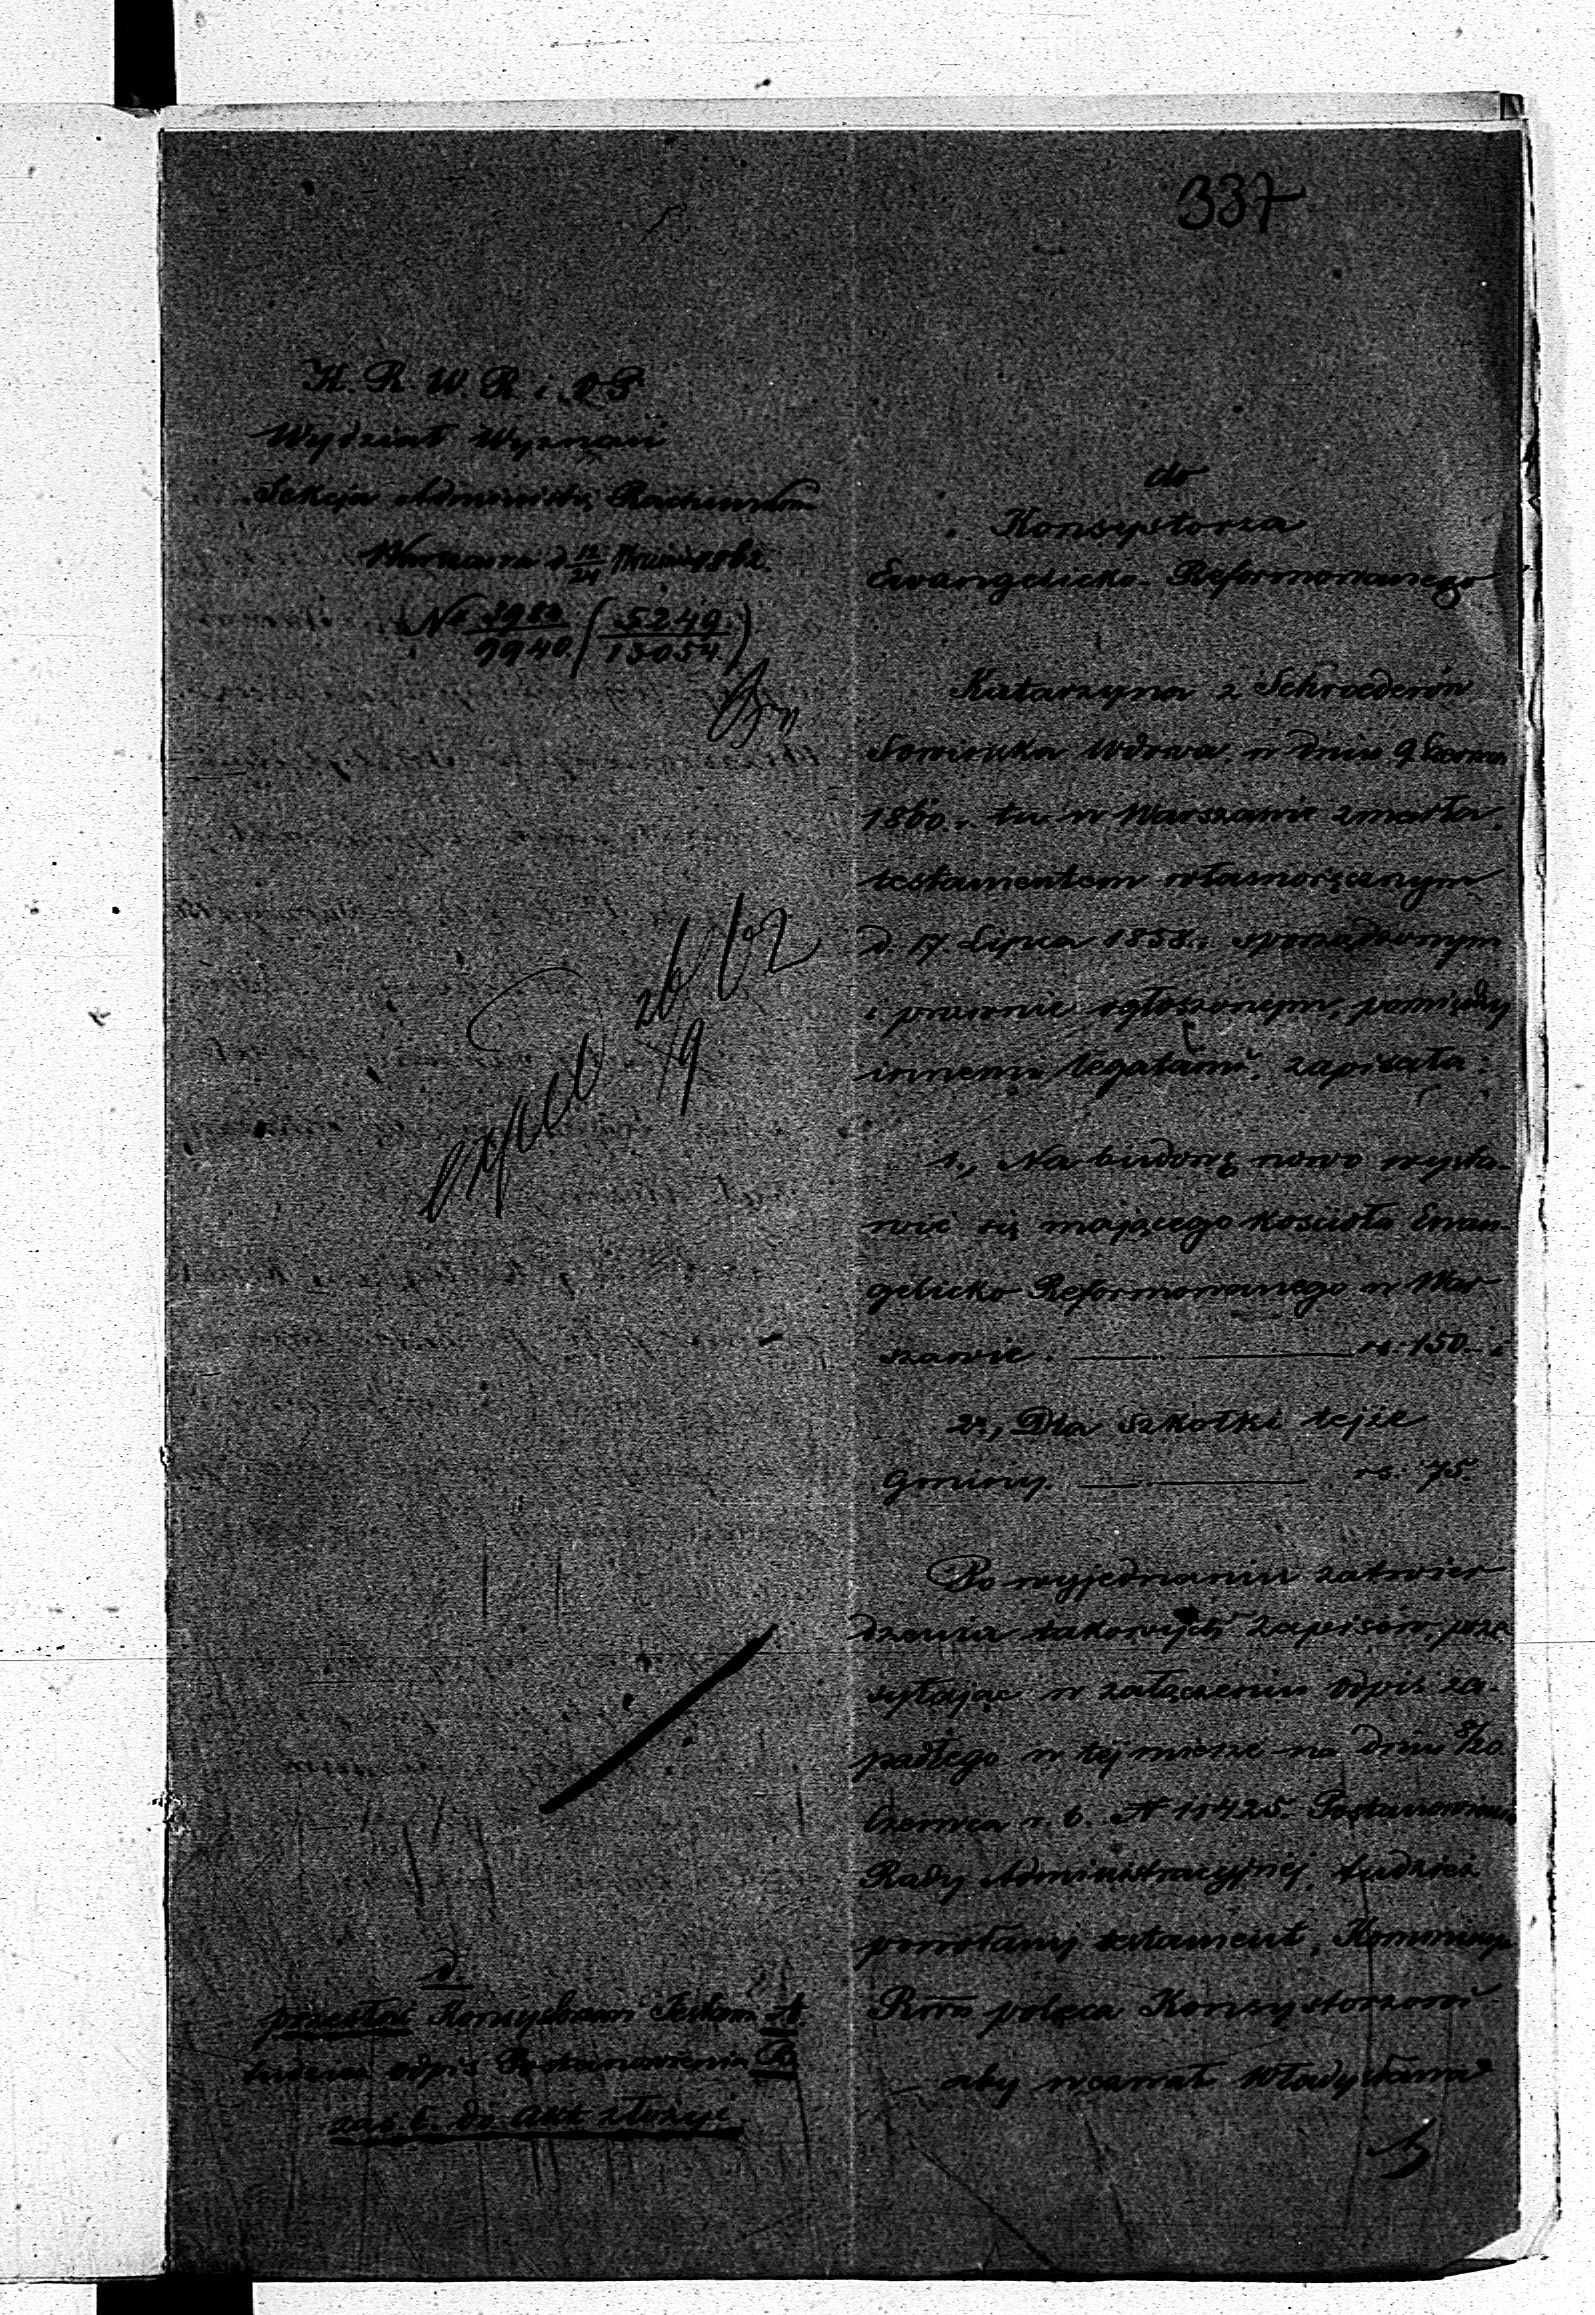 337
K. R. W. R. i O. P.
Wydział Wyznań
Sekcja Administr. Rachunkow.
Warszawa d. 12/24 1862.
№ 3983/9940 (5249/13054)
exped 26/9 62
do
Konsystorza
Ewangelicko-Reformowanego
Katarzyna z Schroederów
Wdowa, w dniu 9 Czerwca
1860 r. tu w Warszawie zmarła,
testamentem własnoręcznym
d. 17. Lipca 1858 r. sporządzonym
i prawnie ogłoszonym, pomiędzy
innemi legatami, zapisała:
1., Na budowę nowo wysta-
wić się mającego kościoła Ewan-
gelicko Reformowanego w War
szawie. rs. 150. i
2., Dla szkółki tejże
Gminy. rs. 75.
Po wyjednaniu zatwier
dzenia takowych zapisów, prze
syłając w załączeniu odpis za-
padłego w tej mierze na dniu 8/20
Czerwca r. b. № 11425. Postanowienia
Rady Administracyjnej, tudzież
powołany testament, Kommissya
Rząd. poleca Konsystorzowi
aby wezwał Władysława
przesłać Konsystorzowi Testam. A.
tudzież odpis Postanowienia B
zaś b. do Akt złożyć.